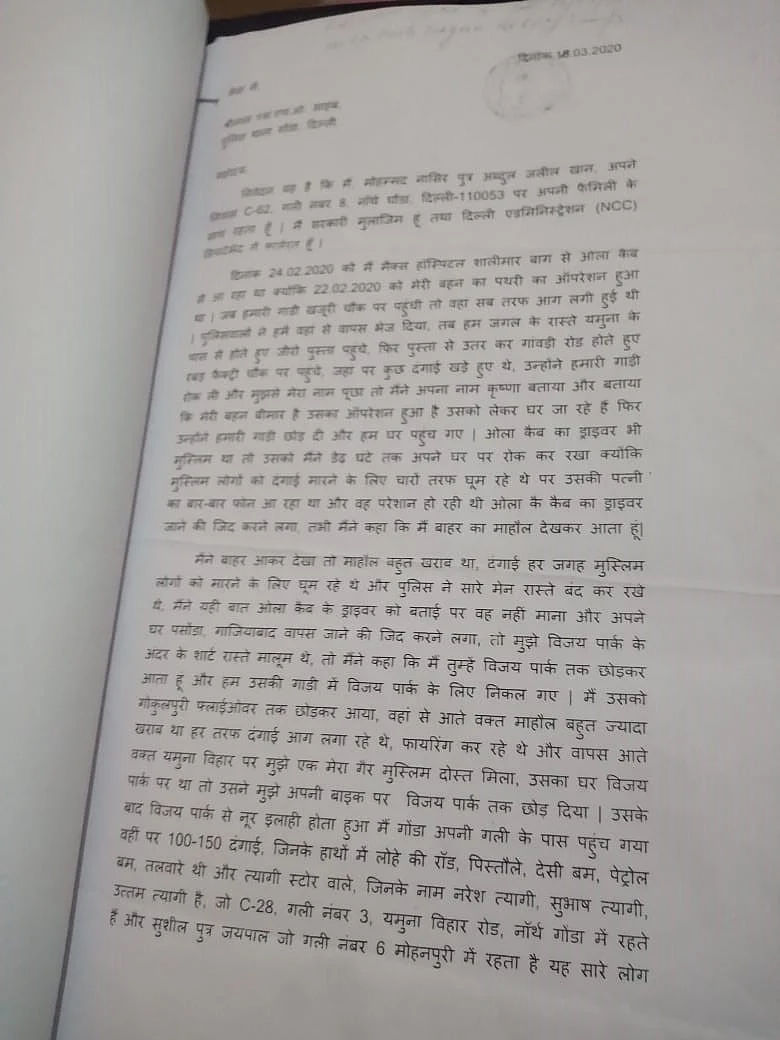 दिनांक 18.03.2020
सेवा में,
श्रीमान एस.एच.ओ. साहब,
पुलिस थाना गोंडा, दिल्ली
महोदय,
निवेदन यह है कि मैं, मोहम्मद नासिर पुत्र अब्दुल जलील खान, अपने
निवास C-62, गली नंबर 8, नॉर्थ घोंडा, दिल्ली-110053 पर अपनी फैमिली के
साथ रहता हूँ | मैं सरकारी मुलाजिम हूं तथा दिल्ली एडमिनिस्ट्रेशन (NCC)
डिपार्टमेंट में कार्यरत हूँ |
दिनांक 24.02.2020 को मैं मैक्स हॉस्पिटल शालीमार बाग से ओला कैब
से आ रहा था क्योंकि 22.02.2020 को मेरी बहन का पथरी का ऑपरेशन हुआ
था | जब हमारी गाडी खजूरी चौक पर पहुंची तो वहा सब तरफ आग लगी हुई थी
| पुलिसवालो ने हमें वहां से वापस भेज दिया, तब हम जगल के रास्ते यमुना के
पास से होते हुए जीरो पुस्ता पहुचे, फिर पुस्ता से उतर कर गांवड़ी रोड होते हुए
रबड़ फैक्ट्री चौक पर पहुंचे, जहां पर कुछ दंगाई खड़े हुए थे, उन्होंने हमारी गाडी
रोक ली और मुझसे मेरा नाम पूछा तो मैंने अपना नाम कृष्णा बताया और बताया
कि मेरी बहन बीमार है उसका ऑपरेशन हुआ है उसको लेकर घर जा रहे हैं फिर
उन्होंने हमारी गाडी छोड़ दी और हम घर पहुंच गए | ओला कैब का ड्राइवर भी
मुस्लिम था तो उसको मैंने डेढ़ घंटे तक अपने घर पर रोक कर रखा क्योंकि
मुस्लिम लोगों को दंगाई मारने के लिए चारों तरफ घूम रहे थे पर उसकी पत्नी
का बार-बार फोन आ रहा था और वह परेशान हो रही थी ओला कै कैब का ड्राइवर
जाने की जिद करने लगा, तभी मैंने कहा कि मैं बाहर का माहौल देखकर आता हूं|
मैंने बाहर आकर देखा तो माहौल बहुत खराब था, दंगाई हर जगह मुस्लिम
लोगों को मारने के लिए घूम रहे थे और पुलिस ने सारे मेन रास्ते बंद कर रखे
थे, मैंने यही बात ओला कैब के ड्राइवर को बताई पर वह नहीं माना और अपने
घर पसोंडा, गाजियाबाद वापस जाने की जिद करने लगा, तो मुझे विजय पार्क के
अंदर के शार्ट रास्ते मालूम थे, तो मैंने कहा कि मैं तुम्हें विजय पार्क तक छोड़कर
आता हूं और हम उसकी गाडी में विजय पार्क के लिए निकल गए | मैं उसको
गोकुलपुरी फ्लाईओवर तक छोड़कर आया, वहां से आते वक्त माहौल बहुत ज्यादा
खराब था हर तरफ दंगाई आग लगा रहे थे, फायरिंग कर रहे थे और वापस आते
वक्त यमुना विहार पर मुझे एक मेरा गैर मुस्लिम दोस्त मिला, उसका घर विजय
पार्क पर था तो उसने मुझे अपनी बाइक पर विजय पार्क तक छोड़ दिया | उसके
बाद विजय पार्क से नूर इलाही होता हुआ मैं गोंडा अपनी गली के पास पहुंच गया
वहीं पर 100-150 दंगाई, जिनके हाथों में लोहे की रॉड, पिस्तौले, देसी बम, पेट्रोल
बम, तलवारे थी और त्यागी स्टोर वाले, जिनके नाम नरेश त्यागी, सुभाष त्यागी,
उत्तम त्यागी है, जो C-28, गली नंबर 3, यमुना विहार रोड, नॉर्थ गोंडा में रहते
हैं और सुशील पुत्र जयपाल जो गली नंबर 6 मोहनपुरी में रहता है यह सारे लोग